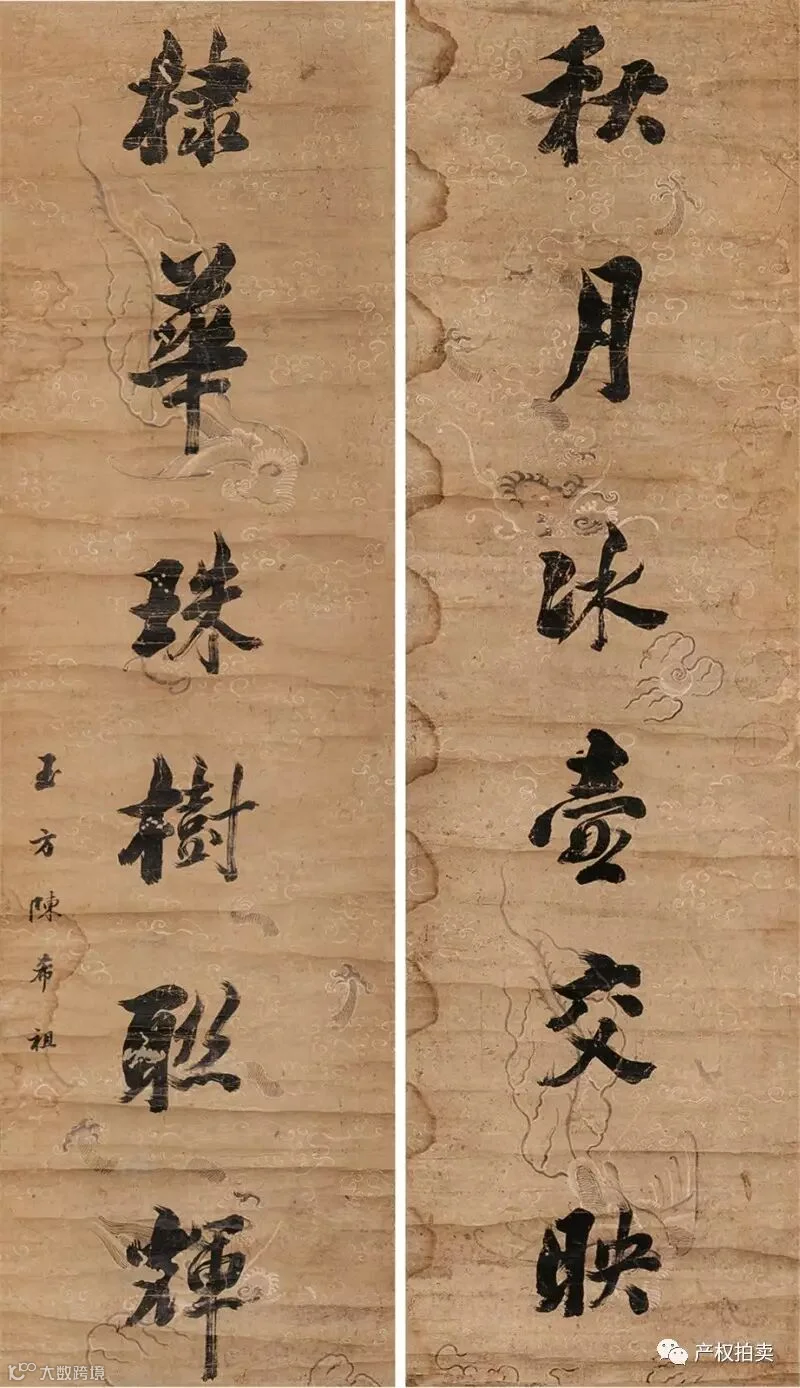 秋月冰壺交映
棣華珠樹聯輝
玉方陳希祖
大数跨境
产权拍卖